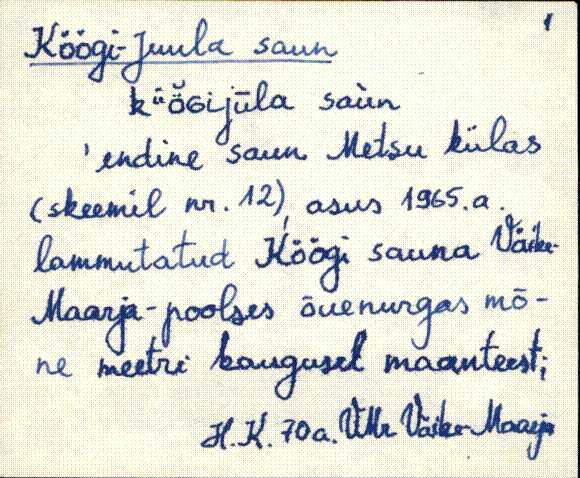 1
Köögi-Juula saun
küöGijūla saùn
'endine saun Metsu külas
(skeemil nr. 12), asus 1965.a.
lammutatud Köögi sauna Väike-
Maarja-poolses õuenurgas mõ-
ne meetri kaugusel maanteest;
H.K. 70a. VMr Väike-Maarja